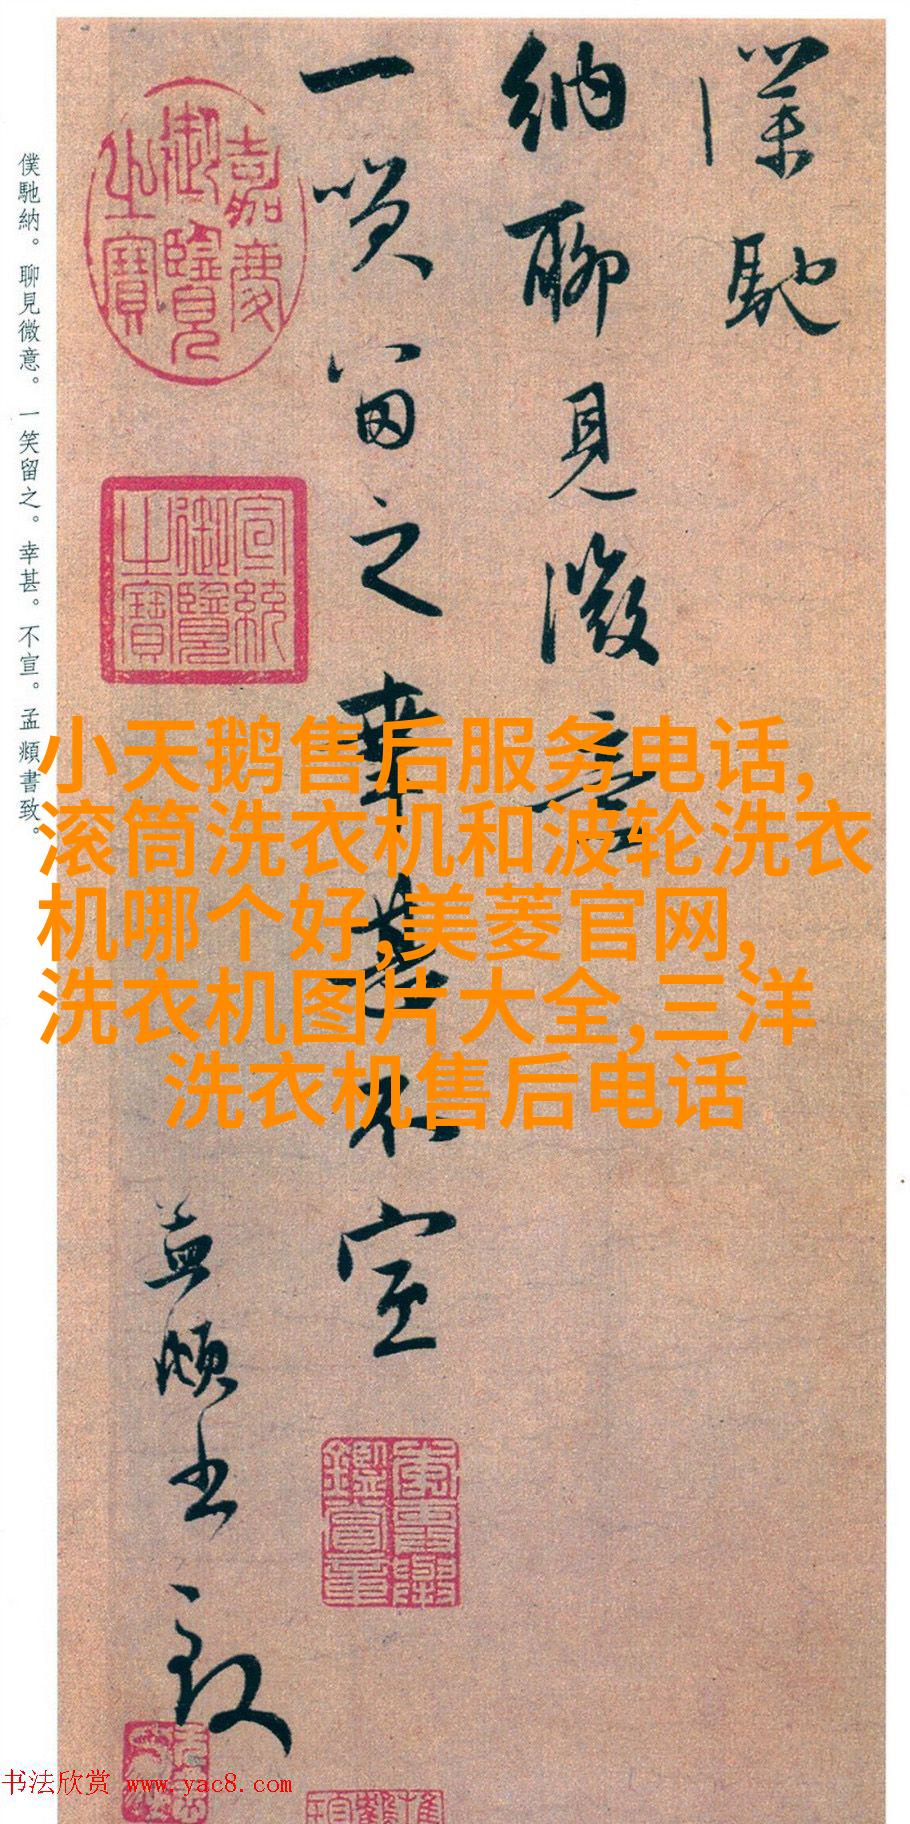 僕馳
納聊見微意
一笑留之幸甚不宣
孟頫書致
嘉慶御覽之寶
宣統御覽之寶
僕馳納。聊見微意。一笑留之。幸甚。不宣。孟頫書致。
小天鹅售后服务电话,
滚筒洗衣机和波轮洗衣
机哪个好,美菱官网,
洗衣机图片大全,三洋
洗衣机售后电话
书法欣赏 www.yac8.com